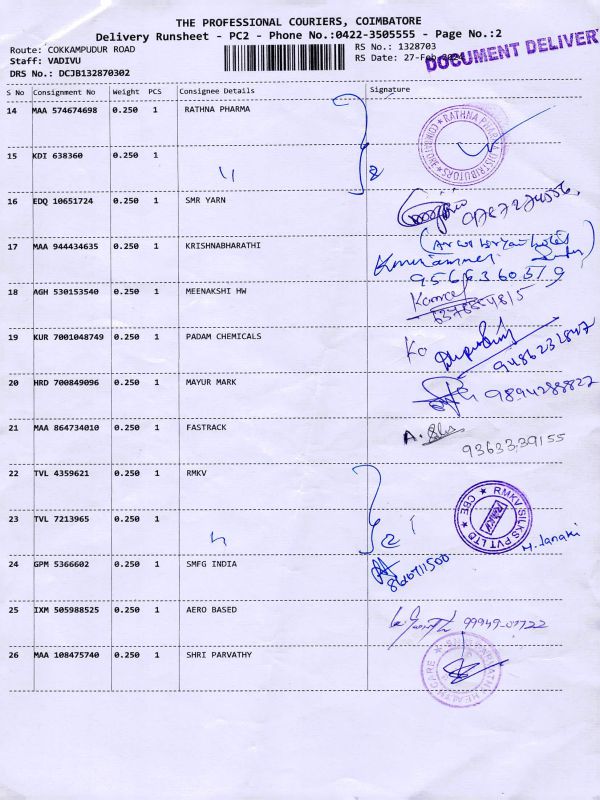 THE PROFESSIONAL COURIERS, COIMBATORE
Delivery Runsheet - PC2 - Phone No.:0422-3505555 - Page No.:2
Route: COKKAMPUDUR ROAD
Staff: VADIVU
DRS No.: DCJB132870302
RS No.: 1328703
RS Date: 27-Feb
DOCUMENT DELIVER
S No Consignment No Weight PCS Consignee Details Signature
14 MAA 574674698 0.250 1 RATHNA PHARMA
RATHNA PHARMA DISTRIBUTORS
15 KDI 638360 0.250 1 〃
2
16 EDQ 10651724 0.250 1 SMR YARN
17 MAA 944434635 0.250 1 KRISHNABHARATHI
9566360579
18 AGH 530153540 0.250 1 MEENAKSHI HW
19 KUR 7001048749 0.250 1 PADAM CHEMICALS
9486232847
20 HRD 700849096 0.250 1 MAYUR MARK
9894288827
21 MAA 864734010 0.250 1 FASTRACK
9363339155
22 TVL 4359621 0.250 1 RMKV
RMKV SILKS PVT LTD CBE
RMKV
23 TVL 7213965 0.250 1 〃
2
H. Janaki
24 GPM 5366602 0.250 1 SMFG INDIA
25 IXM 505988525 0.250 1 AERO BASED
99949-07722
26 MAA 108475740 0.250 1 SHRI PARVATHY